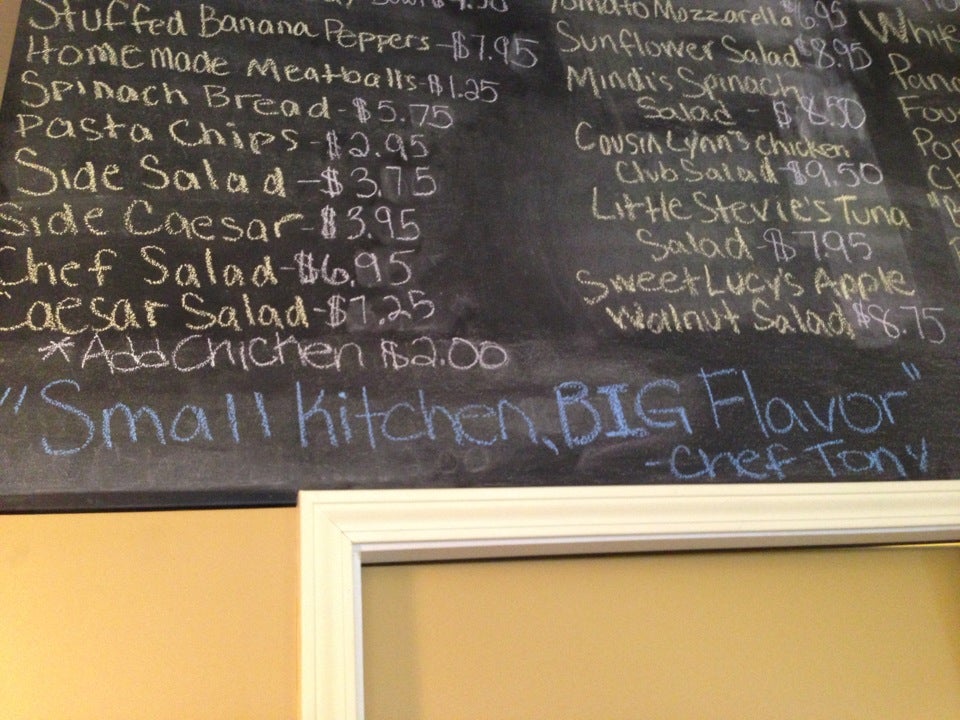 Stuffed Banana Peppers-$7.95
Homemade Meatballs-$1.25
Spinach Bread-$5.75
Pasta Chips-$2.95
Side Salad-$3.75
Side Caesar-$3.95
Chef Salad-$6.95
Caesar Salad-$7.25
*Add Chicken $2.00
Tomato Mozzarella $6.95
Sunflower Salad $8.95
Mindi's Spinach
Salad-$8.50
Cousin Lynn's Chicken
Club Salad-$9.50
Little Stevie's Tuna
Salad-$7.95
Sweet Lucy's Apple
Walnut Salad $8.75
"Small Kitchen, BIG Flavor"
-Chef Tony